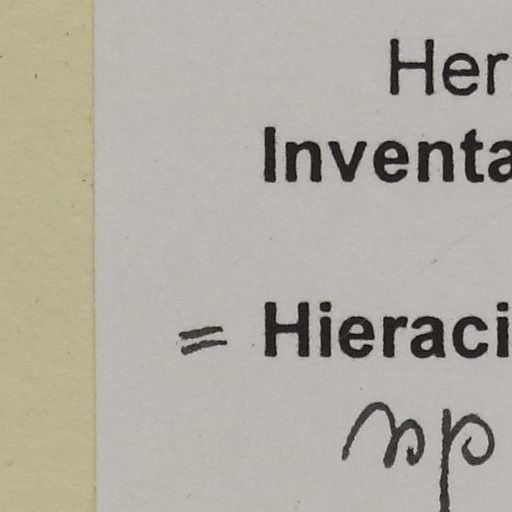 Her
Inventa
= Hieraci
sp